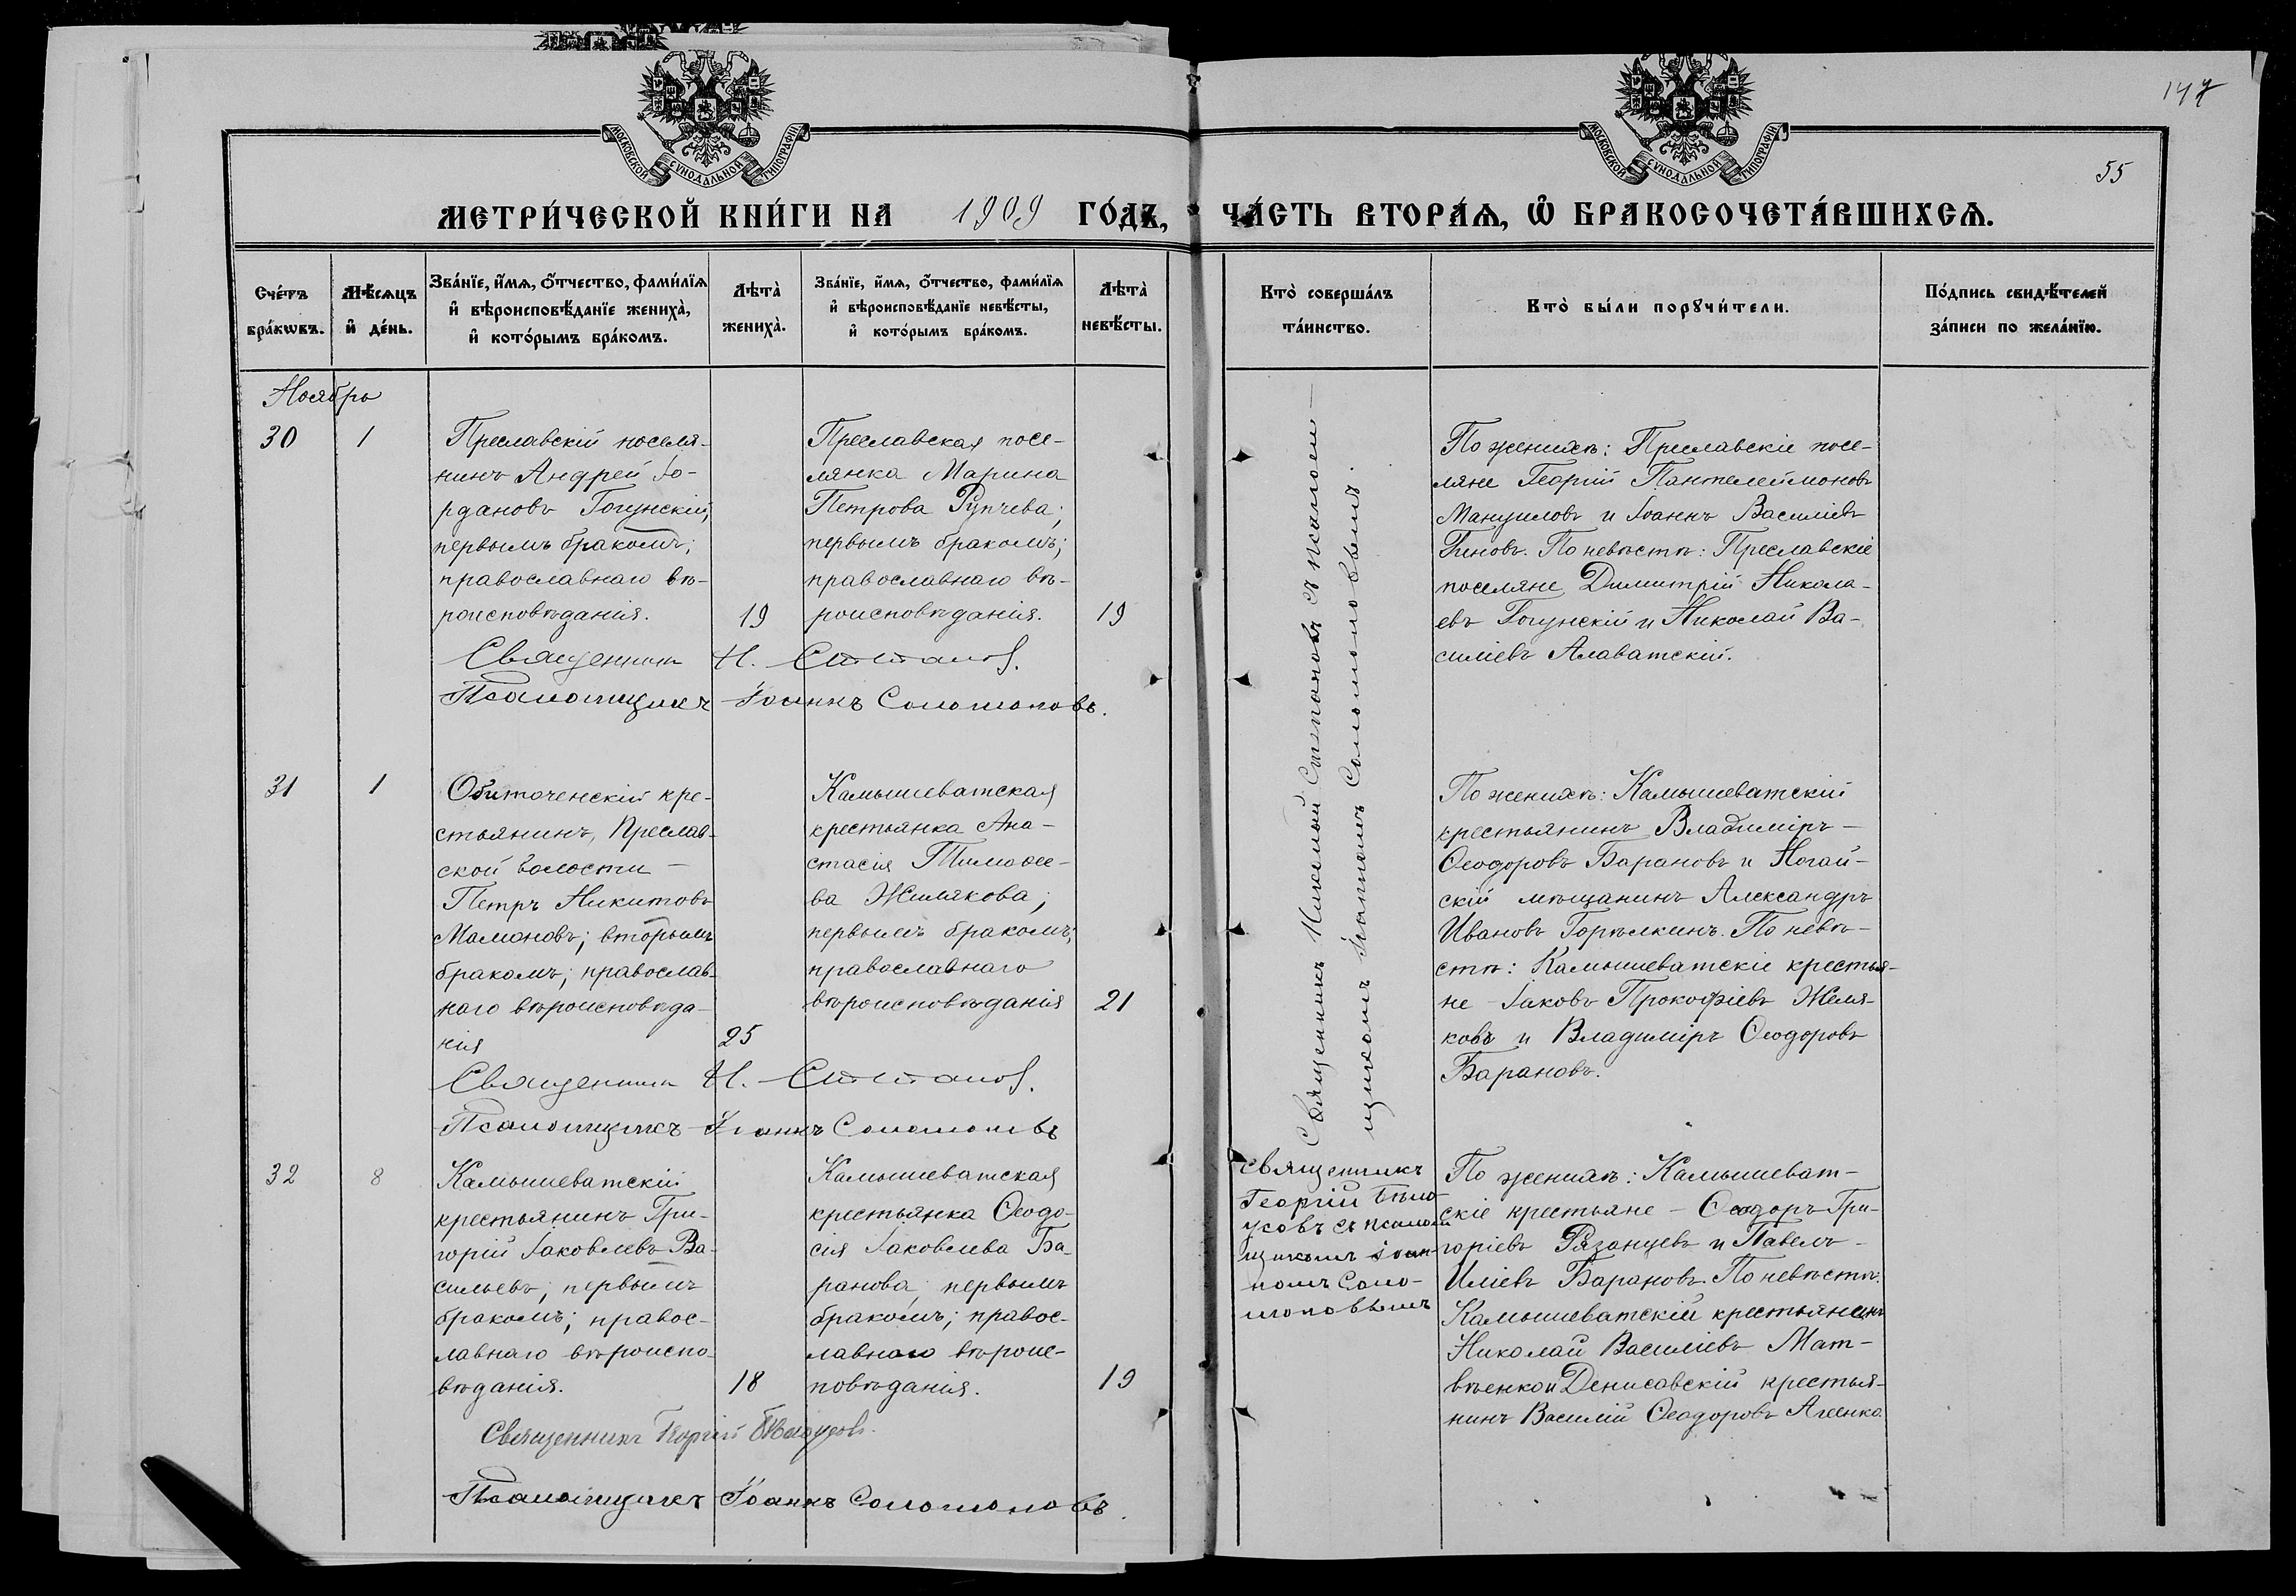 МОСКОВСКОЙ СУНОДАЛЬНОЙ ТИПОГРАФІИ
МОСКОВСКОЙ СУНОДАЛЬНОЙ ТИПОГРАФІИ
147
55
МЕТРИ́ЧЕСКОЙ КНИ́ГИ НА 1909 ГО́ДЪ, ЧА́СТЬ ВТОРА́Я, Ѽ БРАКОСОЧЕТА́ВШИХСЯ.
Сче́тъ
бра́кѡвъ.
Мѣ́сяцъ
и҆ де́нь.
Зва́нїе, и҆́мя, ѻ҆́тчество, фами́лїя
и҆ вѣроисповѣ́данїе жениха̀,
и҆ кото́рымъ бра́комъ.
Лѣта̀
жениха̀.
Зва́нїе, и҆́мя, ѻ҆́тчество, фами́лїя
и҆ вѣроисповѣ́данїе невѣ́сты,
и҆ кото́рымъ бра́комъ.
Лѣта̀
невѣ́сты.
Кто̀ соверша́лъ
та́инство.
Кто̀ бы́ли порꙋчи́тели.
По́дпись свидѣ́телей
за́писи по жела́нїю.
Ноябрь
30
1
Преславскій поселя-
нинъ Андрей Іо-
рдановъ Гогунскій,
первымъ бракомъ;
православнаго вѣ-
роисповѣданія.
19
Преславская посе-
лянка Марина
Петрова Рупчева;
первымъ бракомъ;
православнаго вѣ-
роисповѣданія.
19
Священникъ Н. Степановъ.
Псаломщикъ Іоаннъ Соломоновъ.
Священникъ Николай Степановъ съ псалом-
щикомъ Іоанномъ Соломоновымъ.
По женихѣ: Преславскіе посе-
ляне Георгій Пантелеймоновъ
Мануиловъ и Іоаннъ Василіевъ
Геновъ. По невѣстѣ: Преславскіе
поселяне Димитрій Никола-
евъ Гогунскій и Николай Ва-
силіевъ Алаватскій.
31
1
Обиточенскій кре-
стьянинъ, Преслав-
ской волости -
Петръ Никитовъ
Мамоновъ; вторымъ
бракомъ; православ-
наго вѣроисповѣда-
нія
25
Камышеватская
крестьянка Ана-
стасія Тимоѳее-
ва Жилякова;
первымъ бракомъ;
православнаго
вѣроисповѣданія
21
Священникъ Н. Степановъ.
Псаломщикъ Іоаннъ Соломоновъ
По женихѣ: Камышеватскій
крестьянинъ Владиміръ -
Ѳеодоровъ Барановъ и Ногай-
скій мѣщанинъ Александръ
Ивановъ Горѣлкинъ. По невѣ-
стѣ: Камышеватскіе крестья-
не Іаковъ Прокофіевъ Желя-
ковъ и Владиміръ Ѳеодоровъ
Барановъ.
32
8
Камышеватскій
крестьянинъ Гри-
горій Іаковлевъ Ва-
сильевъ; первымъ
бракомъ; правос-
лавнаго вѣроиспо-
вѣданія.
18
Камышеватская
крестьянка Ѳеодо-
сія Іаковлева Ба-
ранова; первымъ
бракомъ; правос-
лавнаго вѣроис-
повѣданія.
19
Священникъ Георгій Бѣлоусовъ.
Псаломщикъ Іоаннъ Соломоновъ.
Священникъ
Георгій Бѣло-
усовъ съ псалом-
щикомъ Іоан-
номъ Соло-
моновымъ
По женихѣ: Камышеват-
скіе крестьяне - Ѳеодоръ Гри-
горіевъ Рязанцевъ и Павелъ -
Иліевъ Барановъ. По невѣстѣ:
Камышеватскій крестьянинъ
Николай Василіевъ Мат-
вѣенко и Денисовскій крестья-
нинъ Василій Ѳеодоровъ Агеенко.